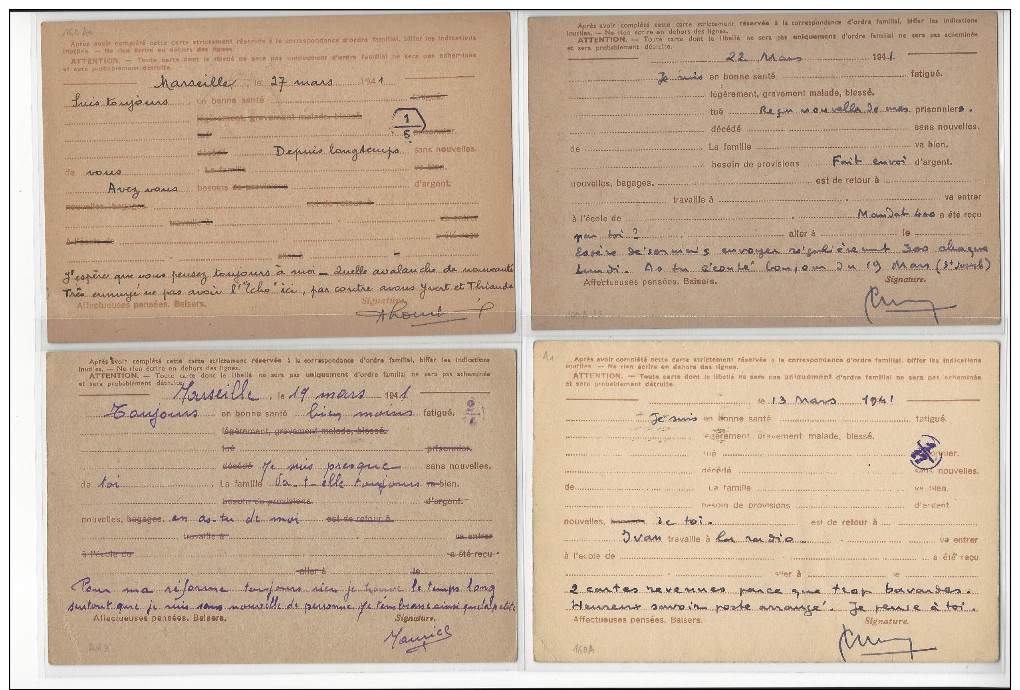 Après avoir complété cette carte strictement réservée à la correspondance d'ordre familial, biffer les indications
inutiles. — Ne rien écrire en dehors des lignes.
ATTENTION. — Toute carte dont le libellé ne sera pas uniquement d'ordre familial ne sera pas acheminée
et sera probablement détruite.
Marseille, le 27 mars 1941
Suis toujours en bonne santé fatigué.
légèrement, gravement malade, blessé.
1
5
tué prisonnier.
décédé Depuis longtemps sans nouvelles.
de vous La famille va bien.
Avez vous besoins de provisions d'argent.
nouvelles, bagages est de retour à
travaille à va entrer
à l'école de a été reçu
aller à le
J'espère que vous pensez toujours à moi — Quelle avalanche de nouveautés
Très ennuyé ne pas avoir l'"Echo" ici, par contre avons Yvert et Thiaude
Affectueuses pensées. Baisers. Signature.
Après avoir complété cette carte strictement réservée à la correspondance d'ordre familial, biffer les indications
inutiles. — Ne rien écrire en dehors des lignes.
ATTENTION. — Toute carte dont le libellé ne sera pas uniquement d'ordre familial ne sera pas acheminée
et sera probablement détruite.
22 Mars 1941
Je suis en bonne santé fatigué.
légèrement, gravement malade, blessé.
tué Reçu nouvelle de mes prisonniers.
décédé sans nouvelles.
de La famille va bien.
besoin de provisions Fait envoi d'argent.
nouvelles, bagages. est de retour à
travaille à va entrer
à l'école de Mandat 400 a été reçu
par toi ? aller à le
Espère désormais envoyer régulièrement 300 chaque
Lundi. As tu écouté du 19 Mars (St Joseph)
Affectueuses pensées. Baisers. Signature.
160A
Après avoir complété cette carte strictement réservée à la correspondance d'ordre familial, biffer les indications
inutiles. — Ne rien écrire en dehors des lignes.
ATTENTION. — Toute carte dont le libellé ne sera pas uniquement d'ordre familial ne sera pas acheminée
et sera probablement détruite.
Marseille, le 19 mars 1941
Toujours en bonne santé bien moins fatigué.
légèrement, gravement malade, blessé.
tué prisonnier.
décédé Je suis presque sans nouvelles.
de toi La famille Va-t-elle toujours bien.
besoin de provisions d'argent.
nouvelles, bagages. en as-tu de moi est de retour à
travaille à va entrer
à l'école de a été reçu
aller à le
Pour ma réforme toujours rien je trouve le temps long
surtout que je suis sans nouvelle de personne. Je t'embrasse ainsi que la petite
Affectueuses pensées. Baisers. Signature.
Maurice
A1
Après avoir complété cette carte strictement réservée à la correspondance d'ordre familial, biffer les indications
inutiles. — Ne rien écrire en dehors des lignes.
ATTENTION. — Toute carte dont le libellé ne sera pas uniquement d'ordre familial ne sera pas acheminée
et sera probablement détruite.
le 13 Mars 1941
Je suis en bonne santé fatigué.
légèrement, gravement malade, blessé.
tué prisonnier.
décédé sans nouvelles.
de La famille va bien.
besoin de provisions d'argent
nouvelles, de toi. est de retour à
Ivan travaille à la radio va entrer
à l'école de a été reçu
aller à le
2 cartes revenues parce que trop bavardes.
Heureux savoir poste arrangé. Je pense à toi.
Affectueuses pensées. Baisers. Signature.
160A